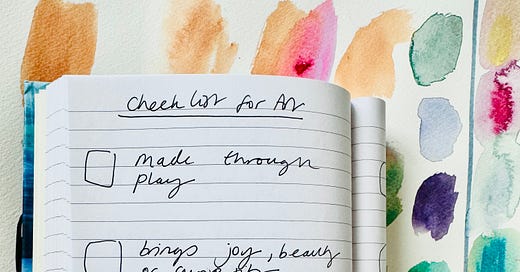 Checklist for Art
made through
play
brings joy, beauty
or